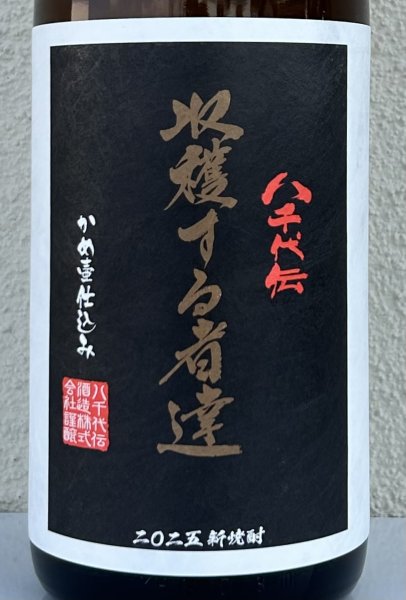 八千代伝
収穫する者達
かめ壺仕込み
八千代伝
酒造株式
会社謹醸
二〇二五 新焼酎